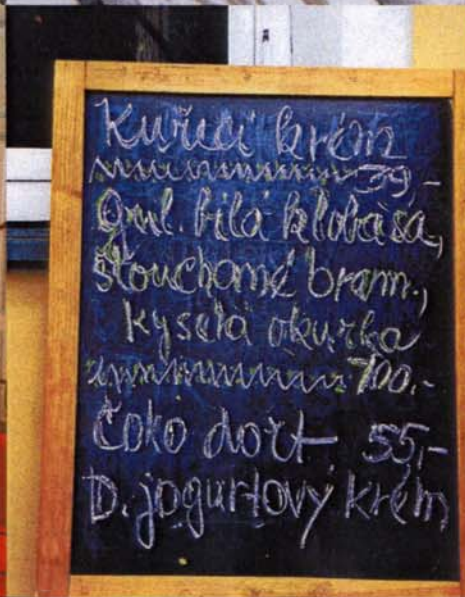 Kuřecí krém
39,-
Gril. bílá klobása,
štouchané bram.,
kyselá okurka
100.-
Čoko dort 55,-
D. jogurtový krém